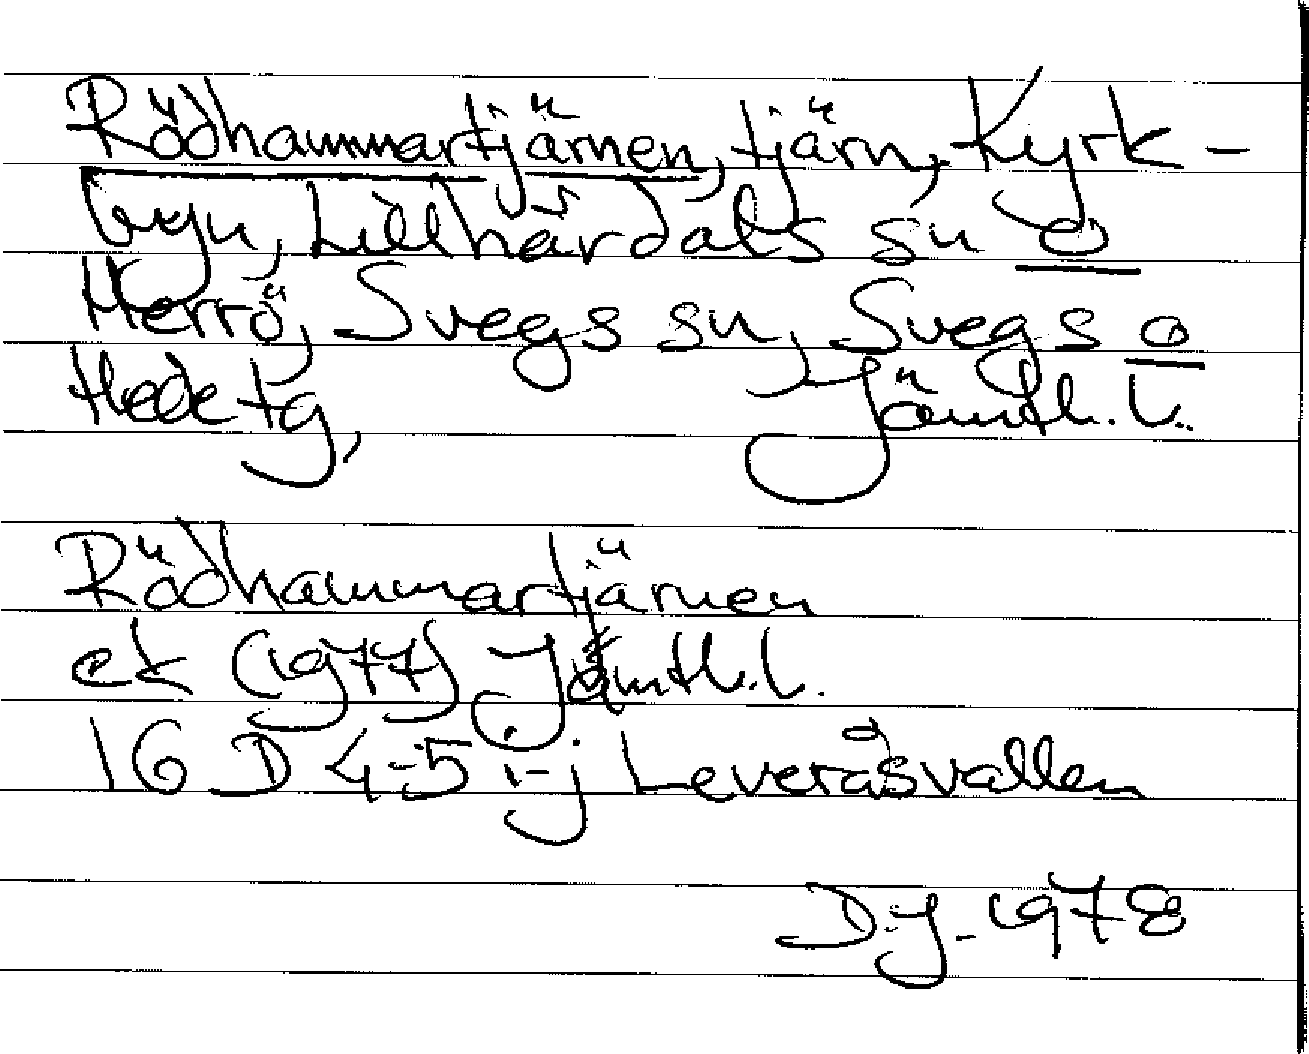 Rödhammartjärnen, tjärn, Kyrk-
byn, Lillhärdals sn o
Herrö, Svegs sn, Svegs o
Hede tg, Jämtl. l.
Rödhammartjärnen
ek (1977) Jämtl. l.
16 D 4-5 i-j Leveråsvallen
DJ-1978